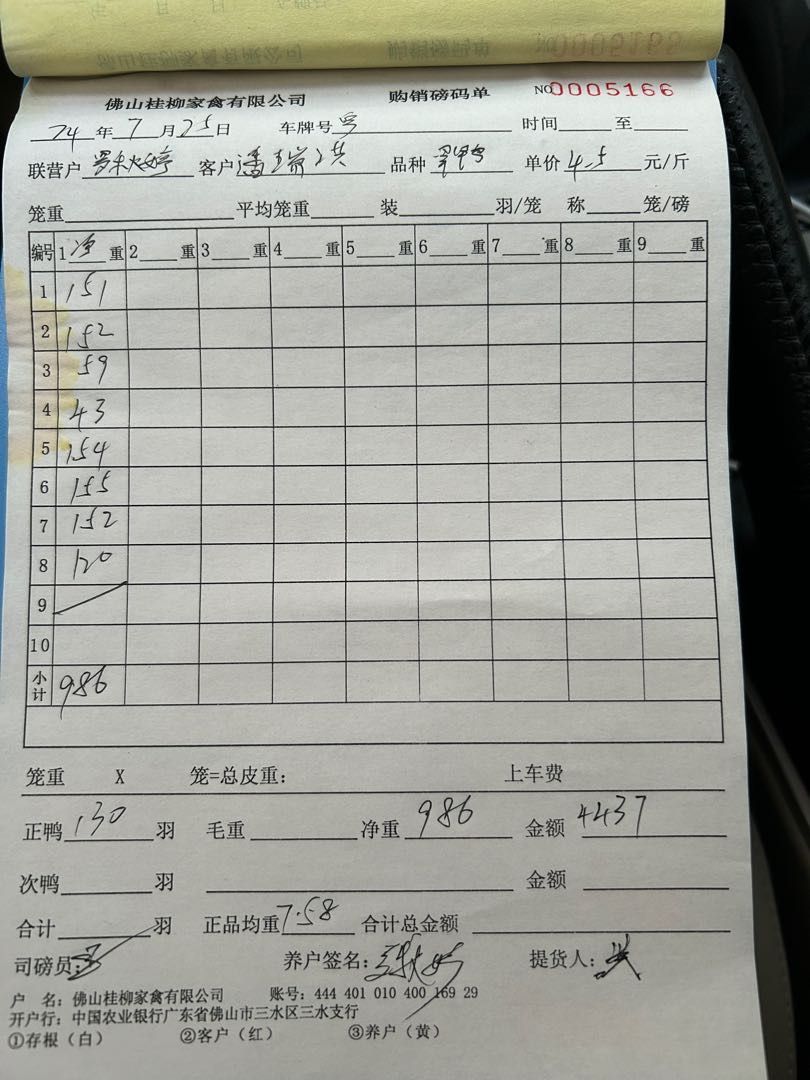 佛山桂柳家禽有限公司 购销磅码单 NO0005166
24年7月25日 车牌号 时间 至
联营户 客户潘 品种 单价4.5元/斤
笼重 平均笼重 装 羽/笼 称 笼/磅
编号 1净重 2 重 3 重 4 重 5 重 6 重 7 重 8 重 9 重
1 151
2 152
3 59
4 43
5 154
6 155
7 152
8 120
9
10
小计 986
笼重 X 笼=总皮重: 上车费
正鸭130羽 毛重 净重986 金额4437
次鸭 羽 金额
合计 羽 正品均重7.58 合计总金额
司磅员: 养户签名: 提货人:
户 名: 佛山桂柳家禽有限公司 账号: 444 401 010 400 169 29
开户行: 中国农业银行广东省佛山市三水区三水支行
①存根(白) ②客户(红) ③养户(黄)